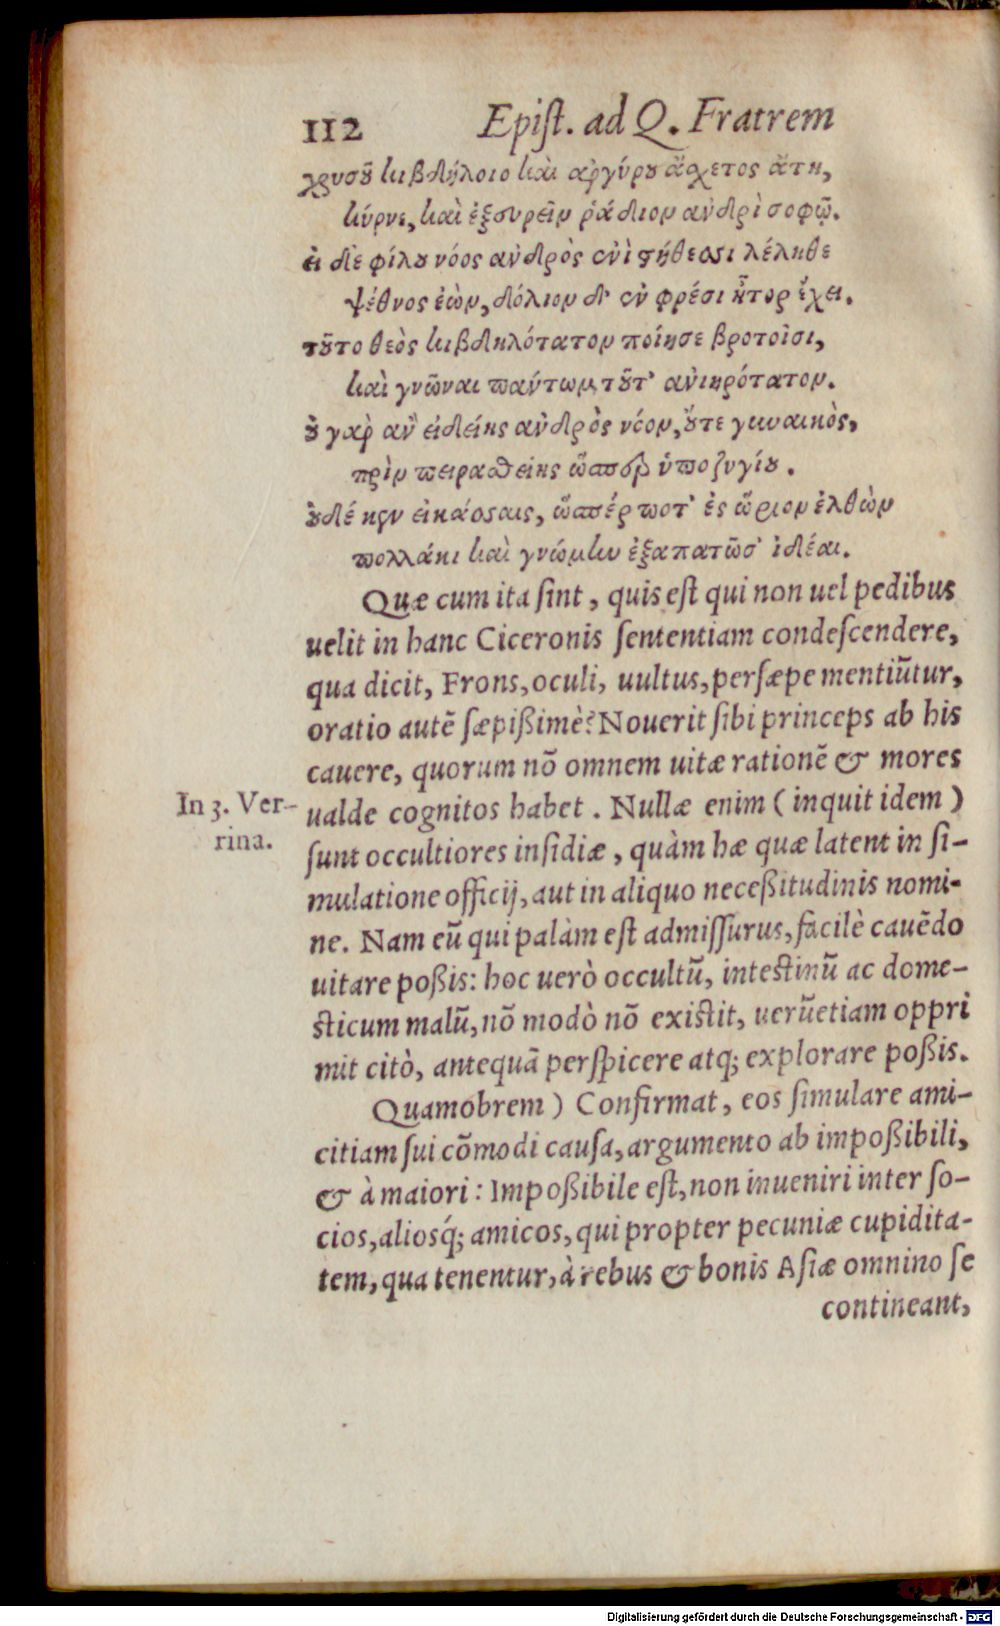 112 Epiſt. ad Q. Fratrem
χρυσοῦ κιβδήλοιο καὶ ἀργύρου ἄσχετος ἄτη,
κύρνε, καὶ ἐξευρεῖν ῥᾴδιον ἀνδρὶ σοφῷ.
εἰ δὲ φίλου νόος ἀνδρὸς ἐνὶ στήθεσσι λέληθε
ψέθνος ἐὼν, δόλιον δ' ἐν φρέσι ἦτορ ἔχει.
τοῦτο θεὸς κιβδηλότατον ποίησε βροτοῖσι,
καὶ γνῶναι πάντων τοῦτ' ἀνιηρότατον.
οὐ γὰρ ἂν εἰδείης ἀνδρὸς νόον, οὔτε γυναικὸς,
πρὶν πειραθείης ὥσπερ ὑποζυγίου.
οὐδέ κεν εἰκάσσαις, ὥσπέρ ποτ' ἐς ὥριον ἐλθὼν
πολλάκι καὶ γνώμην ἐξαπατῶσ' ἰδέαι.
Quæ cum ita ſint, quis eſt qui non uel pedibus
uelit in hanc Ciceronis ſententiam condeſcendere,
qua dicit, Frons, oculi, uultus, perſæpe mentiũtur,
oratio autẽ ſæpißimè? Nouerit ſibi princeps ab his
cauere, quorum nõ omnem uitæ rationẽ & mores
ualde cognitos habet. Nullæ enim (inquit idem)
In 3. Ver-
rina.
ſunt occultiores inſidiæ, quàm hæ quæ latent in ſi-
mulatione officij, aut in aliquo neceßitudinis nomi-
ne. Nam eũ qui palàm eſt admiſſurus, facilè cauẽdo
uitare poßis: hoc uerò occultũ, inteſtinũ ac dome-
ſticum malũ, nõ modò nõ exiſtit, uerũetiam oppri
mit citò, antequã perſpicere atq; explorare poßis.
Quamobrem) Confirmat, eos ſimulare ami-
citiam ſui cõmodi cauſa, argumento ab impoßibili,
& à maiori: Impoßibile eſt, non inueniri inter ſo-
cios, aliosq́; amicos, qui propter pecuniæ cupidita-
tem, qua tenentur, à rebus & bonis Aſiæ omnino ſe
contineant,
Digitalisierung gefördert durch die Deutsche Forschungsgemeinschaft - DFG